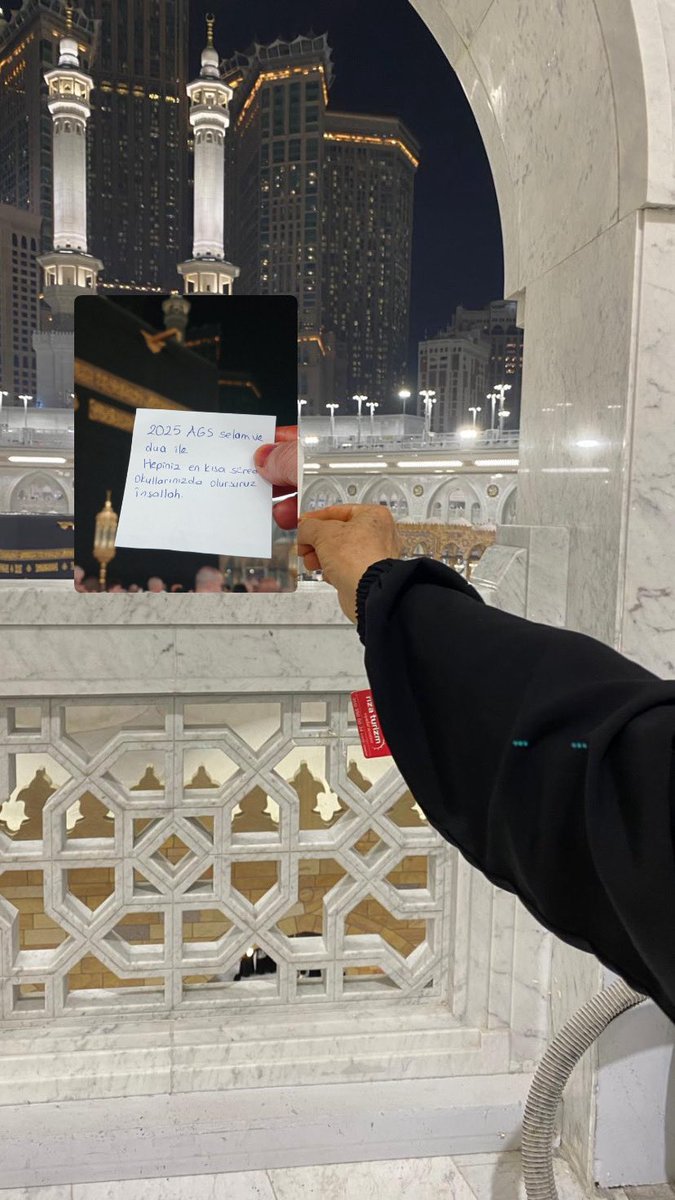 2025 AGS selam ve
dua ile
Hepiniz en kısa sürede
Okullarınızda olursunuz
İnşallah.
rıza turizm